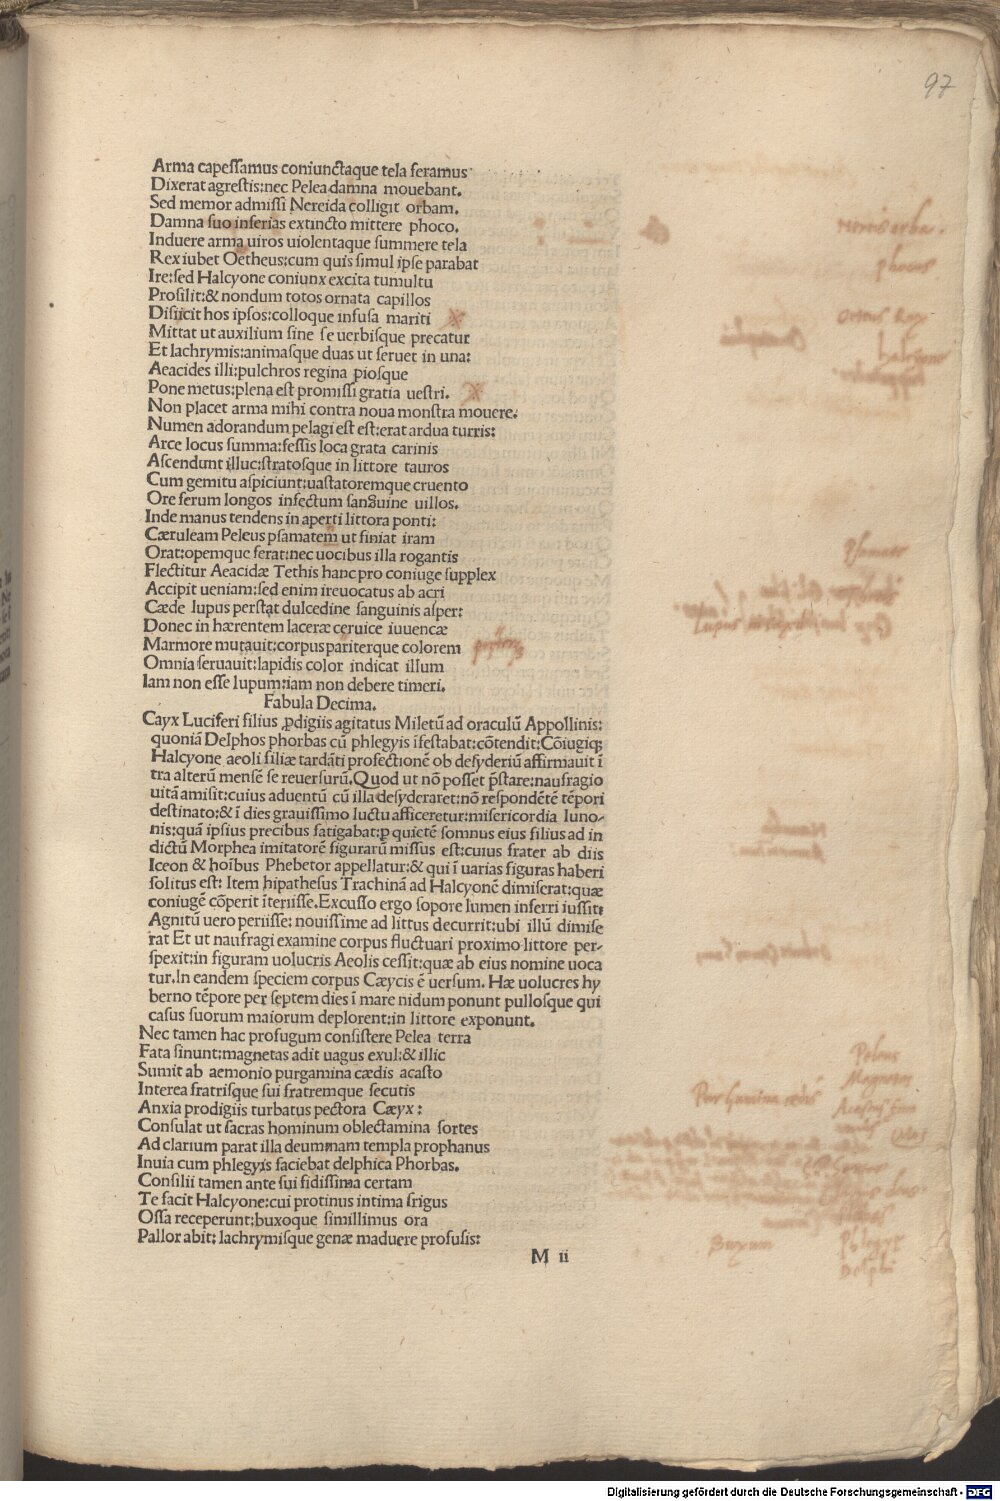 97
Arma capeſſamus coniunctaque tela feramus
Dixerat agreſtis:nec Pelea damna mouebant.
Sed memor admiſſi Nereida colligit orbam.
Damna ſuo inferias extincto mittere phoco.
Induere arma uiros uiolentaque ſummere tela
Rex iubet Oetheus:cum quis ſimul ipſe parabat
Ire:ſed Halcyone coniunx excita tumultu
Proſilit:& nondum totos ornata capillos
Diſiicit hos ipſos:colloque infuſa mariti
Mittat ut auxilium ſine ſe uerbiſque precatur
Et lachrymis:animaſque duas ut ſeruet in una:
Aeacides illi:pulchros regina pioſque
Pone metus:plena eſt promiſſi gratia ueſtri.
Non placet arma mihi contra noua monſtra mouere.
Numen adorandum pelagi eſt eſt:erat ardua turris:
Arce locus ſumma:feſſis loca grata carinis
Aſcendunt illuc:ſtratoſque in littore tauros
Cum gemitu aſpiciunt:uaſtatoremque cruento
Ore ferum longos infectum ſanguine uillos.
Inde manus tendens in aperti littora ponti:
Cæruleam Peleus pſamatem ut finiat iram
Orat:opemque ferat:nec uocibus illa rogantis
Flectitur Aeacidæ Tethis hanc pro coniuge ſupplex
Accipit ueniam:ſed enim ireuocatus ab acri
Cæde lupus perſtat dulcedine ſanguinis aſper:
Donec in hærentem laceræ ceruice iuuencæ
Marmore mutauit:corpus pariterque colorem
Omnia ſeruauit:lapidis color indicat illum
Iam non eſſe lupum:iam non debere timeri.
Fabula Decima.
Cayx Luciferi filius ꝓdigiis agitatus Miletū ad oraculū Appollinis:
quoniā Delphos phorbas cū phlegyis īfeſtabat:cōtendit:Cōiugiqꝫ
Halcyone aeoli filiæ tardāti profectionē ob deſyderiū affirmauit ī
tra alterū menſē ſe reuerſurū.Quod ut nō poſſet p̄ſtare:naufragio
uitā amiſit:cuius aduentū cū illa deſyderaret:nō reſpondētē tēpori
deſtinato:& ī dies grauiſſimo luctu afficeretur:miſericordia Iuno-
nis:quā ipſius precibus fatigabat:ꝑ quietē ſomnus eius filius ad in
dictū Morphea imitatorē figurarū miſſus eſt:cuius frater ab diis
Iceon & hoībus Phebetor appellatur:& qui ī uarias figuras haberi
ſolitus eſt: Item hipatheſus Trachinā ad Halcyonē dimiſerat:quæ
coniugē cōperit īteriiſſe.Excuſſo ergo ſopore lumen inferri iuſſit:
Agnitū uero periiſſe: nouiſſime ad littus decurrit:ubi illū dimiſe
rat Et ut naufragi examine corpus fluctuari proximo littore per-
ſpexit:in figuram uolucris Aeolis ceſſit:quæ ab eius nomine uoca
tur.In eandem ſpeciem corpus Cæycis ē uerſum. Hæ uolucres hy
berno tēpore per ſeptem dies ī mare nidum ponunt pulloſque qui
caſus ſuorum maiorum deplorent:in littore exponunt.
Nec tamen hac profugum conſiſtere Pelea terra
Fata ſinunt:magnetas adit uagus exul:& illic
Sumit ab aemonio purgamina cædis acaſto
Interea fratriſque ſui fratremque ſecutis
Anxia prodigiis turbatus pectora Cæyx:
Conſulat ut ſacras hominum oblectamina ſortes
Ad clarium parat illa deummam templa prophanus
Inuia cum phlegyis faciebat delphica Phorbas.
Conſilii tamen ante ſui fidiſſima certam
Te facit Halcyone:cui protinus intima frigus
Oſſa receperunt:buxoque ſimillimus ora
Pallor abit: lachrymiſque genæ maduere profuſis:
M ii
phocus
Peleus
Magnetes
Buxum
Phlegyę
Delphi
Digitalisierung gefördert durch die Deutsche Forschungsgemeinschaft - DFG